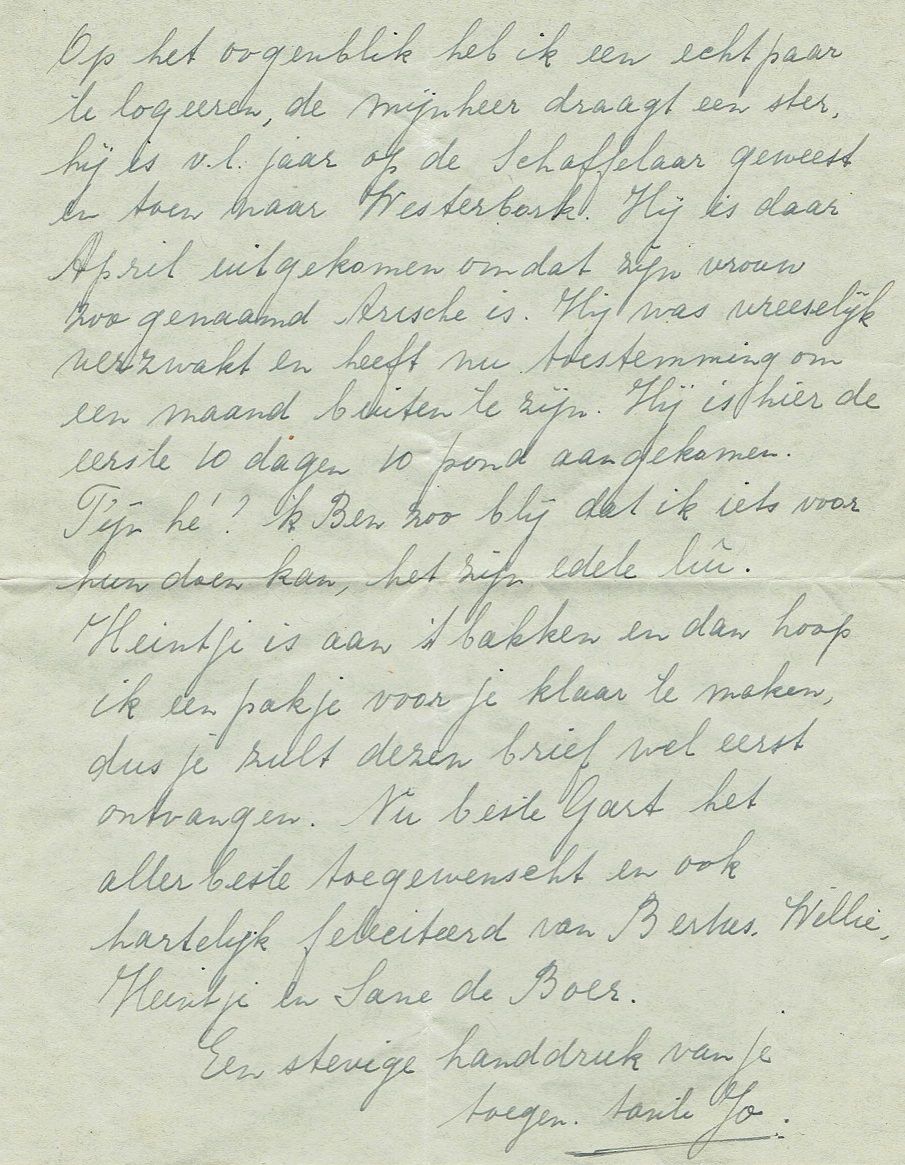 Op het oogenblik heb ik een echtpaar
te logeeren, de mijnheer draagt een ster,
hij is v.l. jaar op de Schaffelaar geweest
en toen naar Westerbork. Hij is daar
April uitgekomen omdat zijn vrouw
zoogenaamd Arische is. Hij was vreeselijk
verzwakt en heeft nu toestemming om
een maand buiten te zijn. Hij is hier de
eerste 10 dagen 10 pond aangekomen.
Fijn hé? 'k Ben zoo blij dat ik iets voor
hun doen kan, het zijn edele lui.
Heintje is aan 't bakken en dan hoop
ik een pakje voor je klaar te maken,
dus je zult dezen brief wel eerst
ontvangen. Nu beste Gart het
allerbeste toegewenscht en ook
hartelijk feliciteerd van Bertus. Willie,
Heintje en Sane de Boer.
Een stevige handdruk van je
toegen. tante Jo.